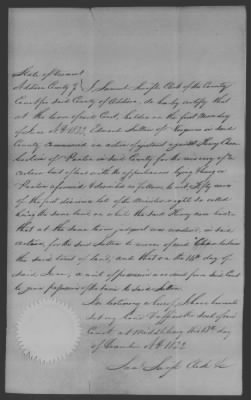 State of Vermont
Addison County } I, Samuel Swift Clerk of the County
Court for said County of Addison, do hereby certify that
at the term of said Court, holden on the first Monday
of June AD 1832, Edward Sutton of Vergennes in said
County commenced an action of ejectment against Henry
of Panton in said County for the recovery of a
certain lot of land with the appurtenances lying & being in
Panton aforesaid & bounded as follows, to wit, Fifty acres
of the first division lot of the
being the same land on which the said Henry now lives
that at the same term judgment was rendered, in said
action, for the said Sutton to recover of said
the said tract of land, and that on the 14th day of
said June, a writ of possession was sent from said Court
to give possession of the same to said Sutton.
In testimony whereof, I have hereunto
set my hand & affixed the seal of said
Court at Middlebury this 13th day
of December AD 1832
Saml Swift Clerk